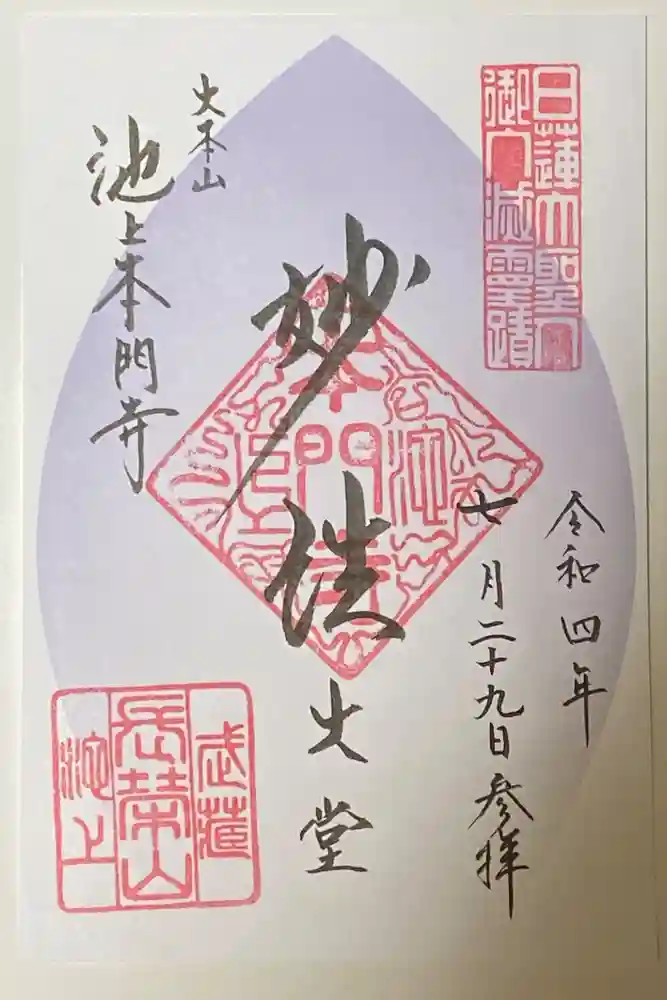 日蓮大聖人
御入滅霊蹟
令和四年
七月二十九日参拝
妙法
大堂
大本山
池上本門寺
本門寺
池上
武蔵
長榮山
池上